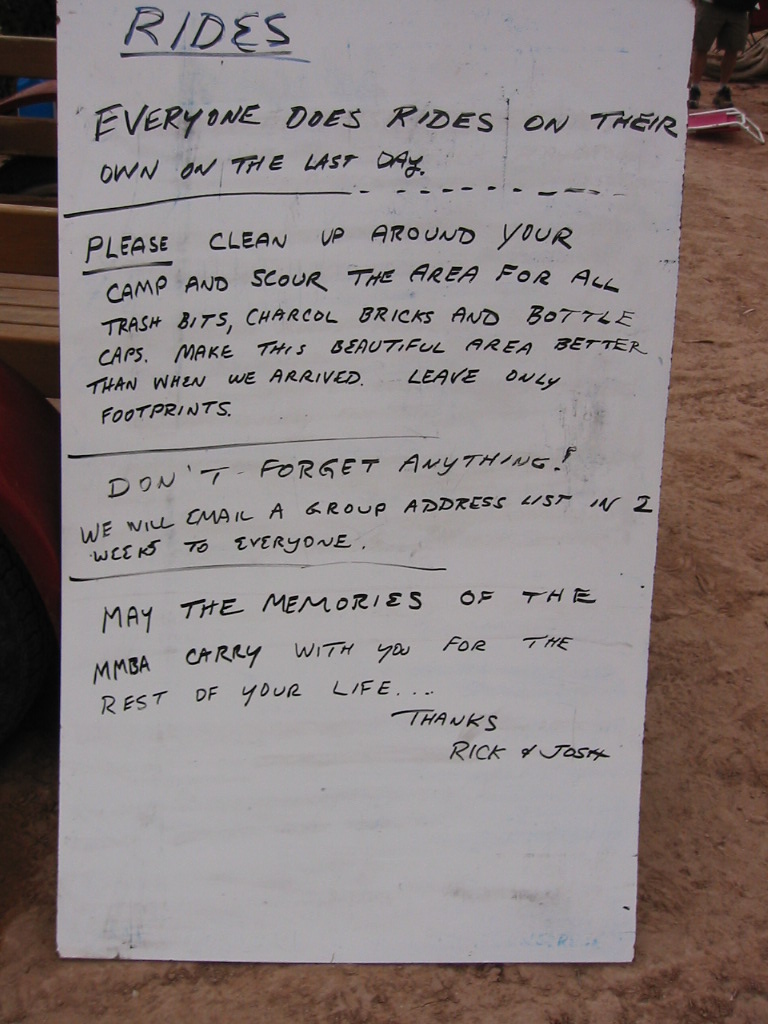 RIDES
EVERYONE DOES RIDES ON THEIR
OWN ON THE LAST DAY.
PLEASE CLEAN UP AROUND YOUR
CAMP AND SCOUR THE AREA FOR ALL
TRASH BITS, CHARCOL BRICKS AND BOTTLE
CAPS. MAKE THIS BEAUTIFUL AREA BETTER
THAN WHEN WE ARRIVED. LEAVE ONLY
FOOTPRINTS.
DON'T FORGET ANYTHING!
WE WILL EMAIL A GROUP ADDRESS LIST IN 2
WEEKS TO EVERYONE.
MAY THE MEMORIES OF THE
MMBA CARRY WITH YOU FOR THE
REST OF YOUR LIFE....
THANKS
RICK & JOSH